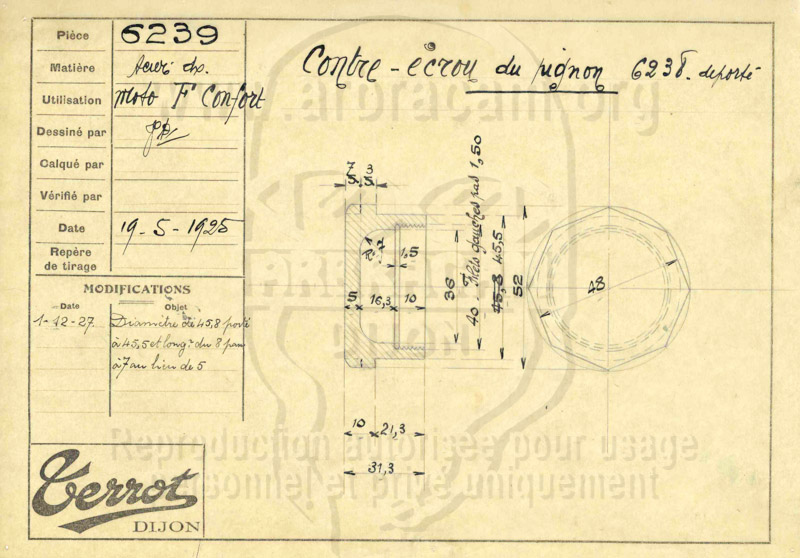 Pièce 6239
Matière Acier dx.
Utilisation Moto F Confort
Dessiné par
Calqué par
Vérifié par
Date 19-5-1925
Repère
de tirage
MODIFICATIONS
Date Objet
1-12-27 Diamètre de 45,8 porté
à 45,5 et longr du 8 pans
à 7 au lieu de 5
Terrot
DIJON
Contre-écrou du pignon 6238. deporté
7 3
5 5
R. 1
7
1,5
5 16,3 10
36
40 - Filets gauches pas 1,50
45,8 45,5
52
48
10 21,3
31,3
www.arbracam.org
DIJON
Reproduction autorisée pour usage
personnel et privé uniquement